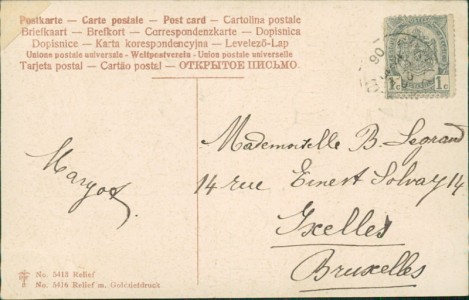 Postkarte – Carte postale – Post card – Cartolina postale
Briefkaart – Brefkort – Correspondenzkarte – Dopisnica
Dopisnice – Karta korespondencyjna – Levelező-Lap
Unione postale universale - Weltpostverein - Union postale universelle
Tarjeta postal – Cartão postal – ОТКРЫТОЕ ПИСЬМО.
06
1c 1c
Mademoiselle B. Legrand
14 rue Ernest Solvay 14
Ixelles
Bruxelles
Margot
No. 5418 Relief
No. 5476 Relief m. Golddruck